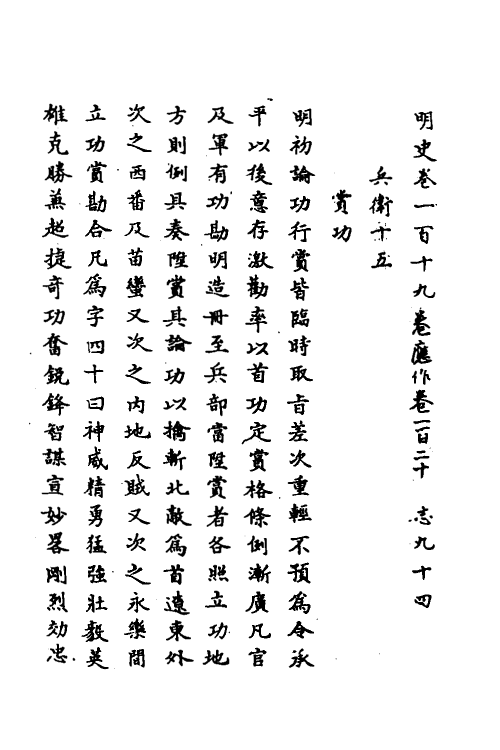 明史卷一百十九卷應作卷一百二十　志九十四
兵衛十五
賞功
明初論功行賞皆臨時取旨差次重輕不預為令承
平以後意存激勸率以首功定賞格條例漸廣凡官
及軍有功勘明造冊至兵部當陞賞者各照立功地
方則例具奏陞賞其論功以擒斬北敵爲首遼東外
次之西番及苗蠻又次之内地反賊又次之永樂間
立功賞勘合凡爲字四十曰神威精勇猛強壯毅英
雄克勝兼超捷奇功奮銳鋒智謀宣妙畧剛烈効忠